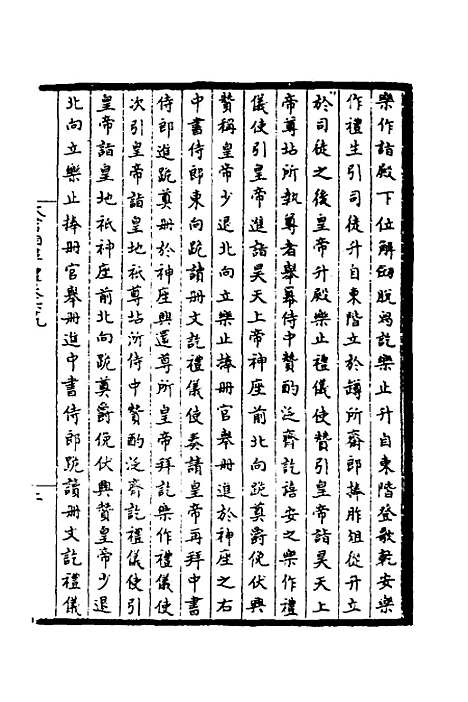 樂作詣殿下位解劒脱舄訖樂止升自東階登歌乾安樂
作禮生引司徒升自東階立於罇所齋郎捧胙俎從升立
於司徒之後皇帝升殿樂止禮儀使贊引皇帝詣昊天上
帝尊坫所執尊者舉羃侍中贊酌泛齊訖禧安之樂作禮
儀使引皇帝進詣昊天上帝神座前北向跪奠爵俛伏興
贊稱皇帝少退北向立樂止捧册官舉册進於神座之右
中書侍郎東向跪讀册文訖禮儀使奏請皇帝再拜中書
侍郎進跪奠册於神座興還尊所皇帝拜訖樂作禮儀使
次引皇帝詣皇地祇尊坫所侍中贊酌泛齊訖禮儀使引
皇帝詣皇地祇神座前北向跪奠爵俛伏興贊皇帝少退
北向立樂止捧册官舉册進中書侍郎跪讀册文訖禮儀